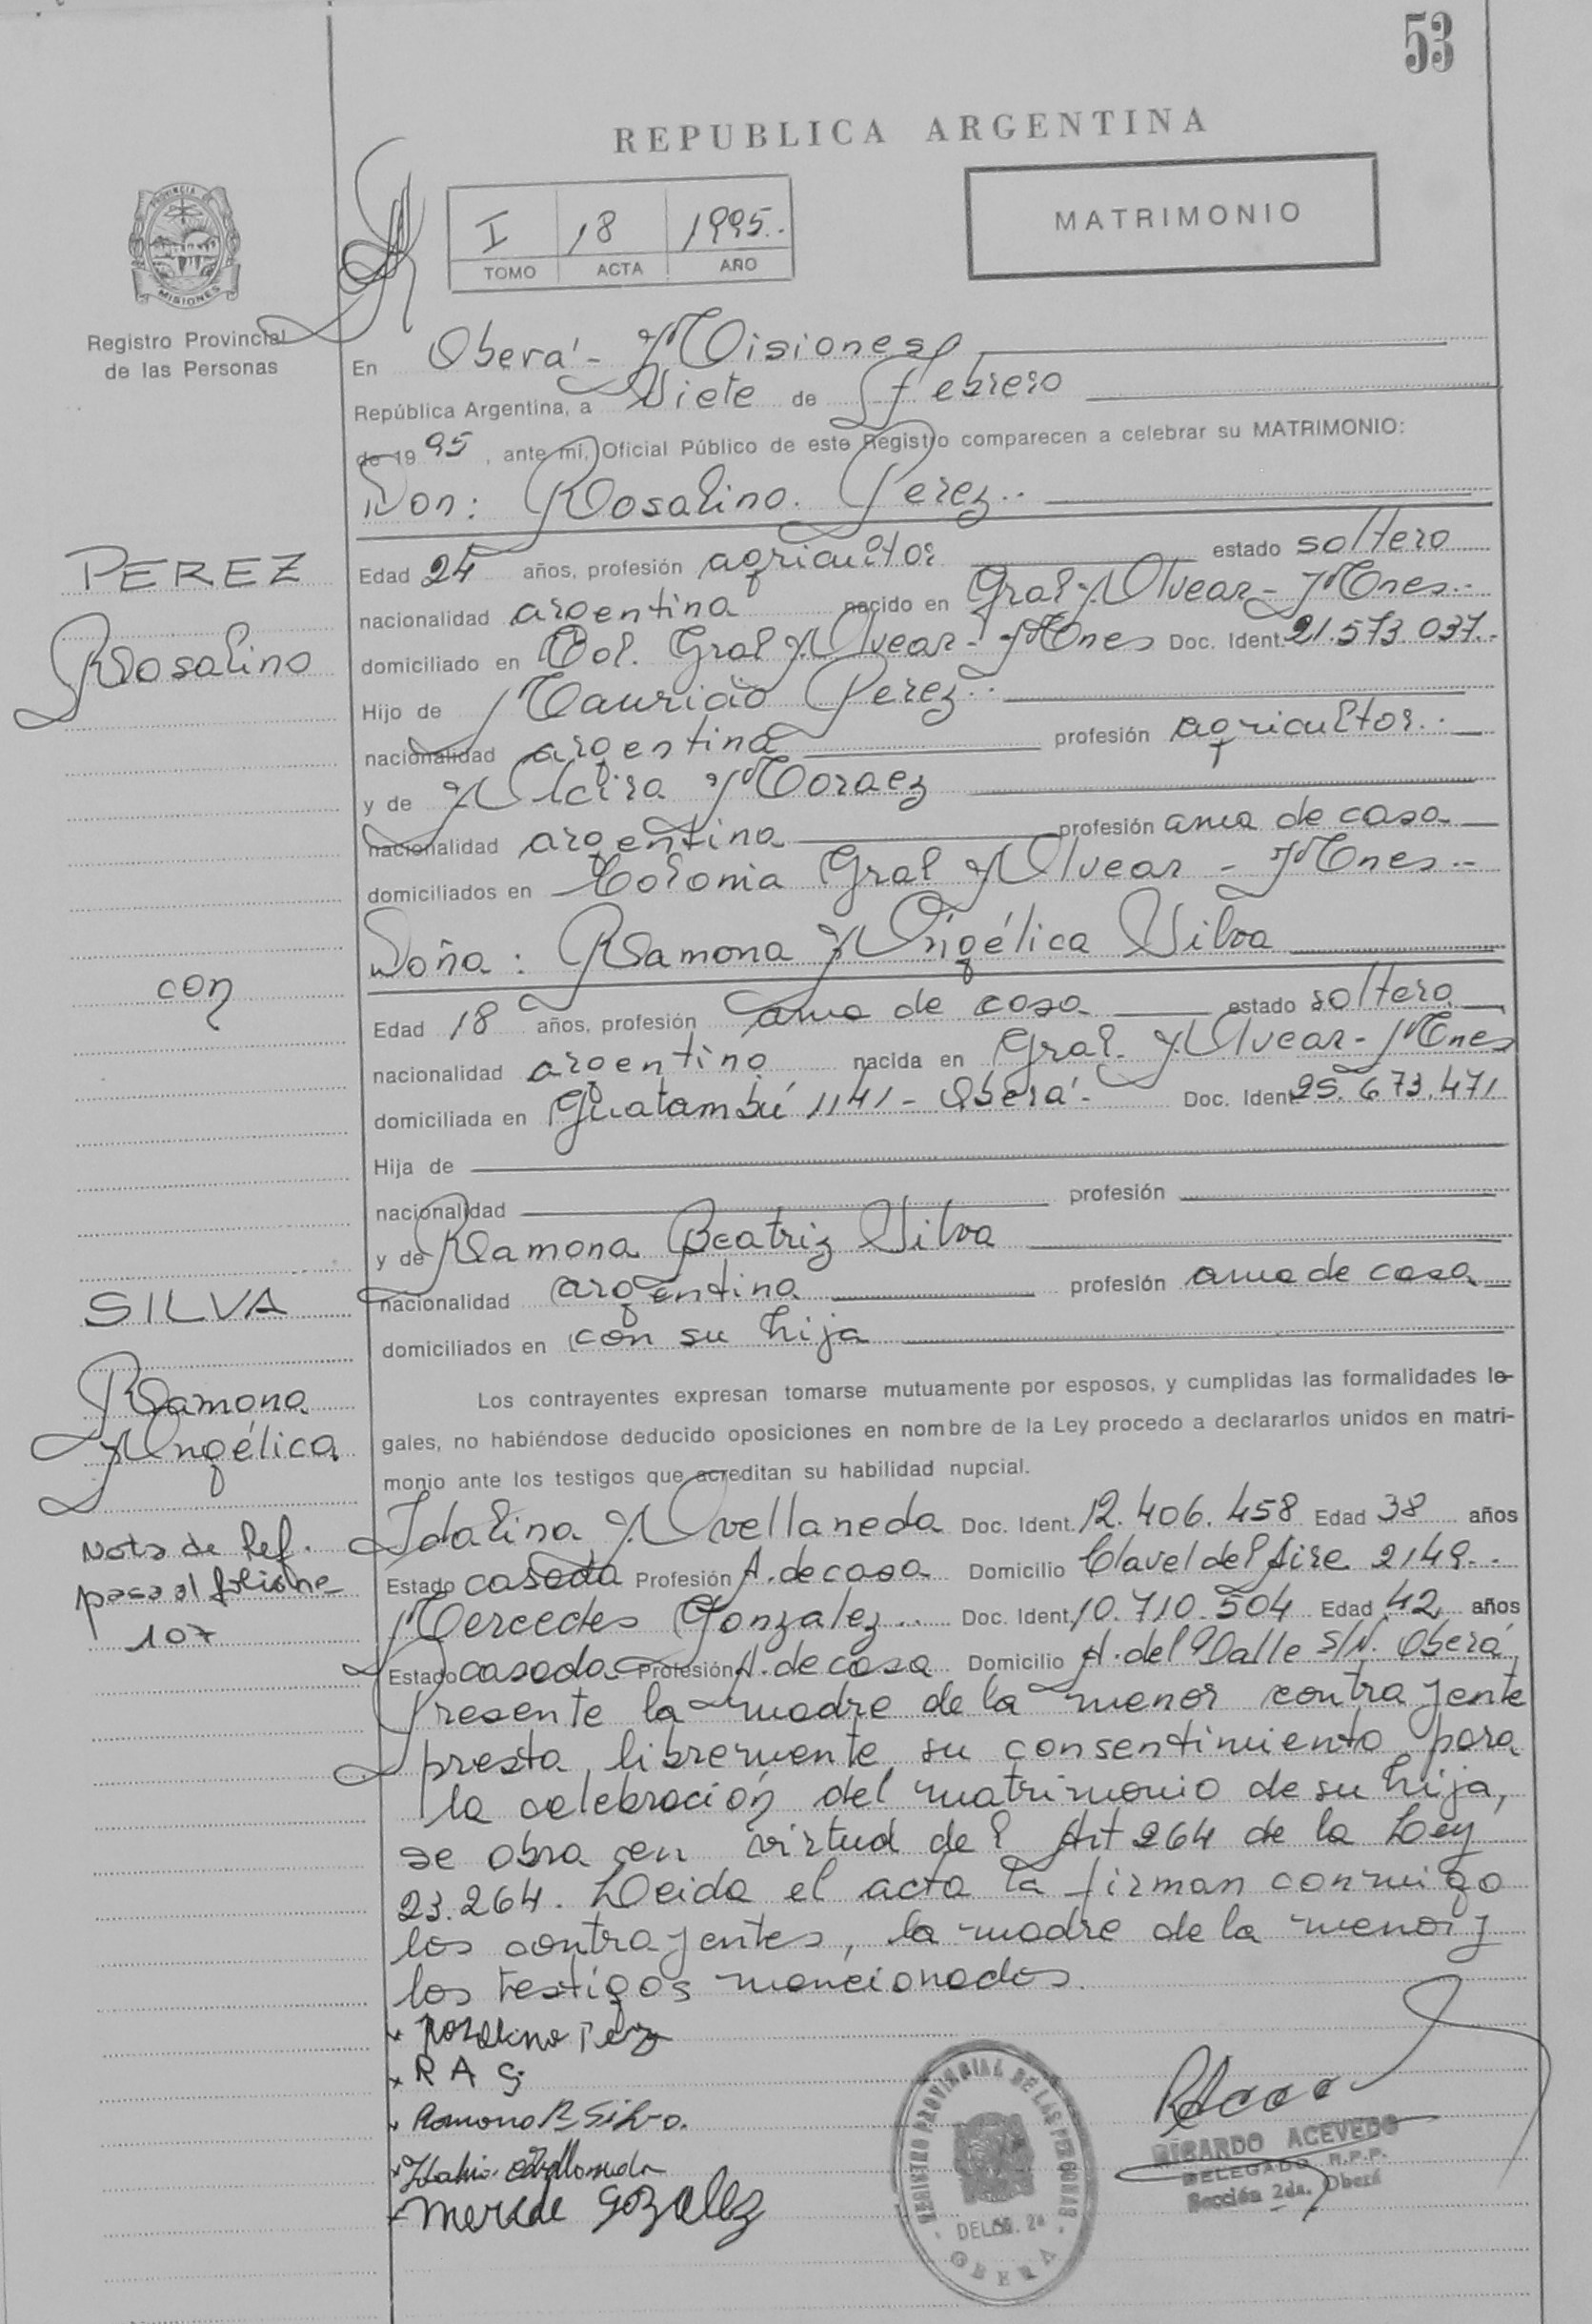 53
REPUBLICA ARGENTINA
MATRIMONIO
I 18 1995
TOMO ACTA AÑO
PROVINCIA DE MISIONES
Registro Provincial
de las Personas
En Oberá - Misiones
República Argentina, a Siete de Febrero
de 19 95, ante mí, Oficial Público de este Registro comparecen a celebrar su MATRIMONIO:
Don: Rosalino Perez
PEREZ
Rosalino
Edad 24 años, profesión agricultor estado soltero
nacionalidad argentina nacido en Gral. Alvear - Mnes.-
domiciliado en Col. Gral Alvear - Mnes Doc. Ident. 21.573.037.-
Hijo de Mauricio Perez
nacionalidad argentina profesión agricultor.-
y de Alcira Moraez
nacionalidad argentina profesión ama de casa
domiciliados en Colonia Gral Alvear - Mnes.-
con
Doña: Ramona Angélica Silva
Edad 18 años, profesión ama de casa estado soltera
nacionalidad argentina nacida en Gral. Alvear - Mnes
domiciliada en Guatambú 1141 - Oberá - Doc. Ident. 25.673.471
Hija de
nacionalidad profesión
y de Ramona Beatriz Silva
SILVA
Ramona
Angélica
nacionalidad argentina profesión ama de casa
domiciliados en con su hija
Los contrayentes expresan tomarse mutuamente por esposos, y cumplidas las formalidades le-
gales, no habiéndose deducido oposiciones en nombre de la Ley procedo a declararlos unidos en matri-
monio ante los testigos que acreditan su habilidad nupcial.
Nota de Ref.
pasa al
107
Idalina Avellaneda Doc. Ident. 12.406.458 Edad 38 años
Estado casada Profesión A. de casa Domicilio Clavel del Aire 2149.-
Mercedes Gonzalez Doc. Ident. 10.710.504 Edad 42 años
Estado casada Profesión A. de casa Domicilio A. del Valle S/N. Oberá
Presente la madre de la menor contrayente
presta libremente su consentimiento para
la celebración del matrimonio de su hija,
se obra en virtud del Art 264 de la Ley
23.264. Leida el acta la firman conmigo
los contrayentes, la madre de la menor y
los testigos mencionados.
x Rosalino Perez
x R A S
x Ramona B Silva.
x Avellaneda
x Mercde Gozalez
REGISTRO PROVINCIAL DE LAS PERSONAS
DELEG. 2a
OBERA
RICARDO ACEVEDO
DELEGADO R.P.P.
Sección 2da. Oberá